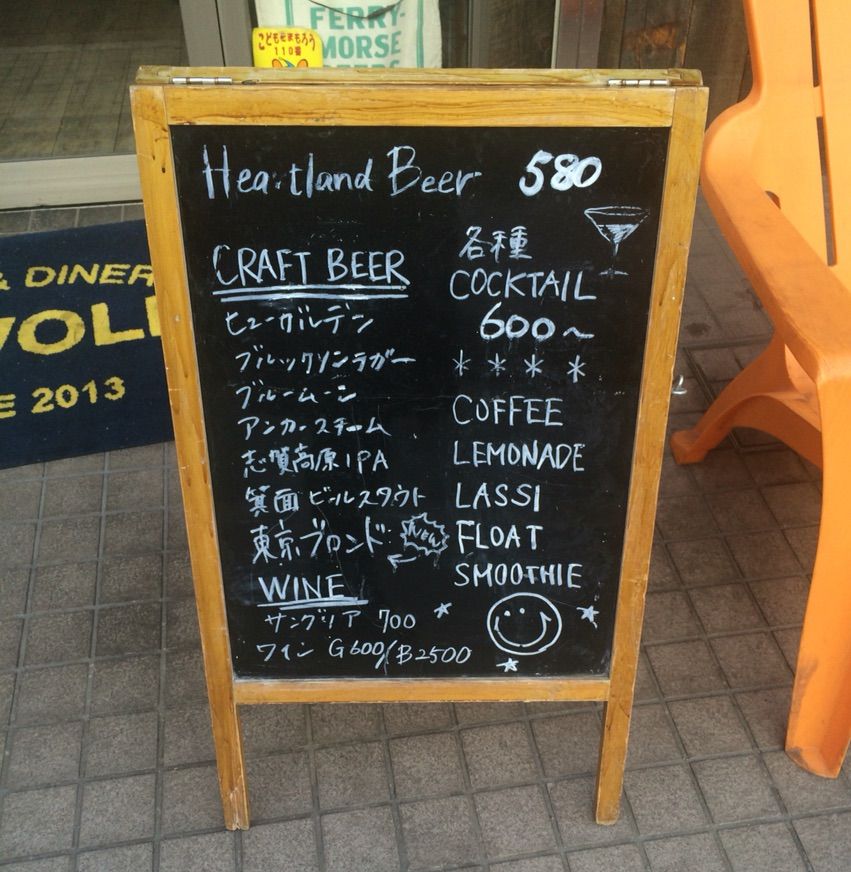 こどもをまもろう
110番
FERRY-
MORSE
Heartland Beer 580
CRAFT BEER
ヒューガルデン
ブルックリンラガー
ブルームーン
アンカースチーム
志賀高原IPA
箕面ビールスタウト
東京ブロンド NEW
WINE
サングリア 700
ワイン G600/B2500
各種
COCKTAIL
600~
* * * *
COFFEE
LEMONADE
LASSI
FLOAT
SMOOTHIE
& DINER
E 2013